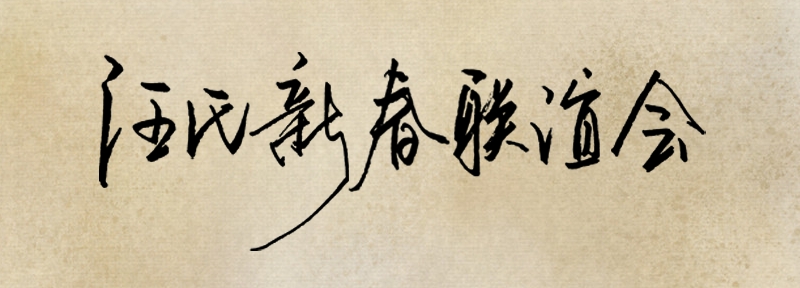 汪氏新春联谊会